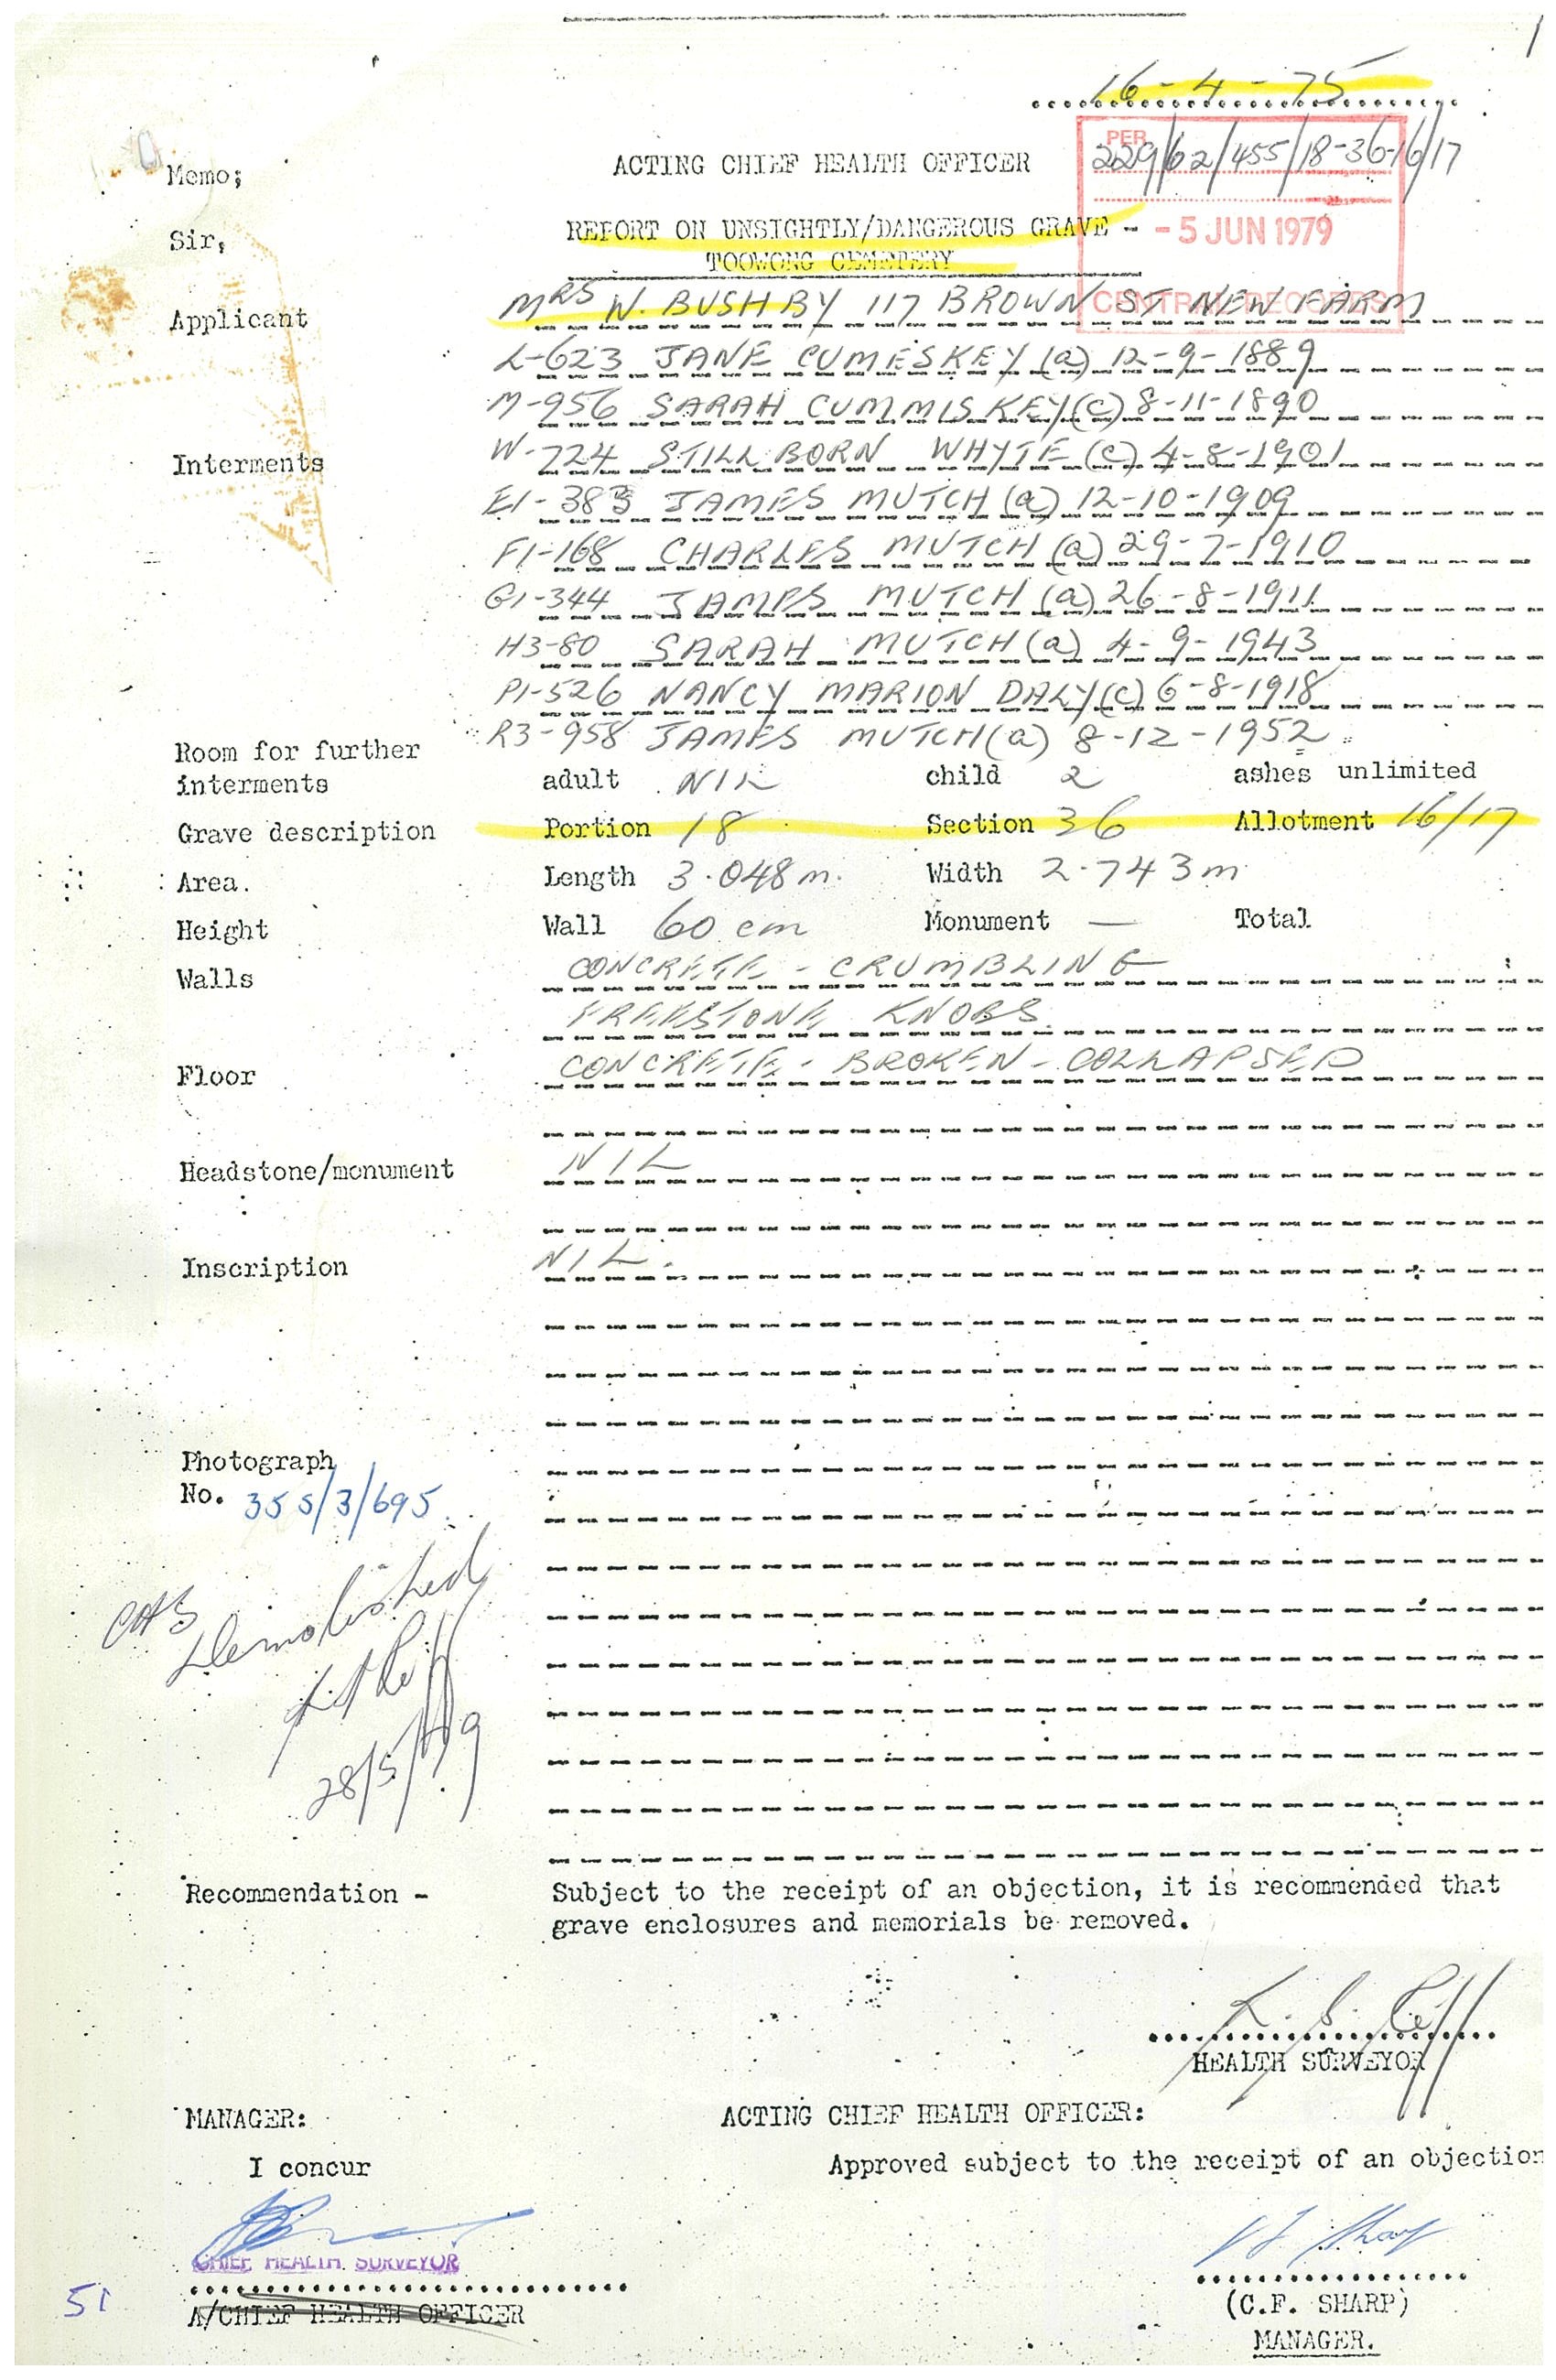 1
16-4-75
PER
229/62/455/18-36-16/17
Memo; ACTING CHIEF HEALTH OFFICER
Sir, REPORT ON UNSIGHTLY/DANGEROUS GRAVE - - 5 JUN 1979
TOOWONG CEMETERY
CENTRAL RECORDS
Applicant MRS N. BUSHBY 117 BROWN ST NEW FARM
L-623 JANE CUMESKEY (a) 12-9-1889
M-956 SARAH CUMMISKEY (c) 8-11-1890
Interments W-724 STILLBORN WHYTE (c) 4-8-1901
E1-383 JAMES MUTCH (a) 12-10-1909
F1-168 CHARLES MUTCH (a) 29-7-1910
G1-344 JAMES MUTCH (a) 26-8-1911
H3-80 SARAH MUTCH (a) 4-9-1943
P1-526 NANCY MARION DALY (c) 6-8-1918
R3-958 JAMES MUTCH (a) 8-12-1952
Room for further
interments adult NIL child 2 ashes unlimited
Grave description Portion 18 Section 36 Allotment 16/17
Area. Length 3.048 m. Width 2.743 m
Height Wall 60 cm Monument — Total
Walls CONCRETE - CRUMBLING
FREESTONE KNOBS
Floor CONCRETE - BROKEN - COLLAPSED
Headstone/monument NIL
Inscription NIL.
Photograph
No. 355/3/695
CHS
Demolished
28/5/79
Recommendation - Subject to the receipt of an objection, it is recommended that
grave enclosures and memorials be removed.
HEALTH SURVEYOR
MANAGER: ACTING CHIEF HEALTH OFFICER:
I concur Approved subject to the receipt of an objection
CHIEF HEALTH SURVEYOR
51 A/CHIEF HEALTH OFFICER (C.F. SHARP)
MANAGER.